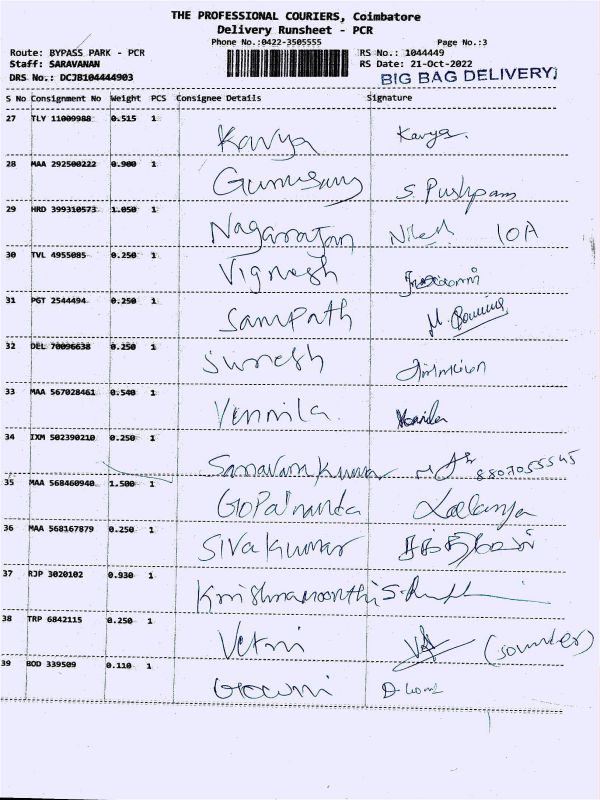 THE PROFESSIONAL COURIERS, Coimbatore
Delivery Runsheet - PCR
Phone No.:0422-3505555 Page No.:3
Route: BYPASS PARK - PCR RS No.: 1044449
Staff: SARAVANAN RS Date: 21-Oct-2022
DRS No.: DCJB104444903 BIG BAG DELIVERY
S No Consignment No Weight PCS Consignee Details Signature
27 TLY 11009988 0.515 1 Kavya Kavya.
28 MAA 292500222 0.900 1 S. Pushpam
29 HRD 399310573 1.050 1 Nagarajan 10A
30 TVL 4955085 0.250 1 Vignesh
31 PGT 2544494 0.250 1 Sampath
32 DEL 70096638 0.250 1 Suresh
33 MAA 567028461 0.540 1 Vennila
34 IXM 502390210 0.250 1 Saravana Kumar 8807055545
35 MAA 568460940 1.500 1 Gopal nanda
36 MAA 568167879 0.250 1 Siva Kumar
37 RJP 3020102 0.930 1 Krishnamoorthi
38 TRP 6842115 0.250 1 Vetri
39 BOD 339509 0.110 1 Gowri